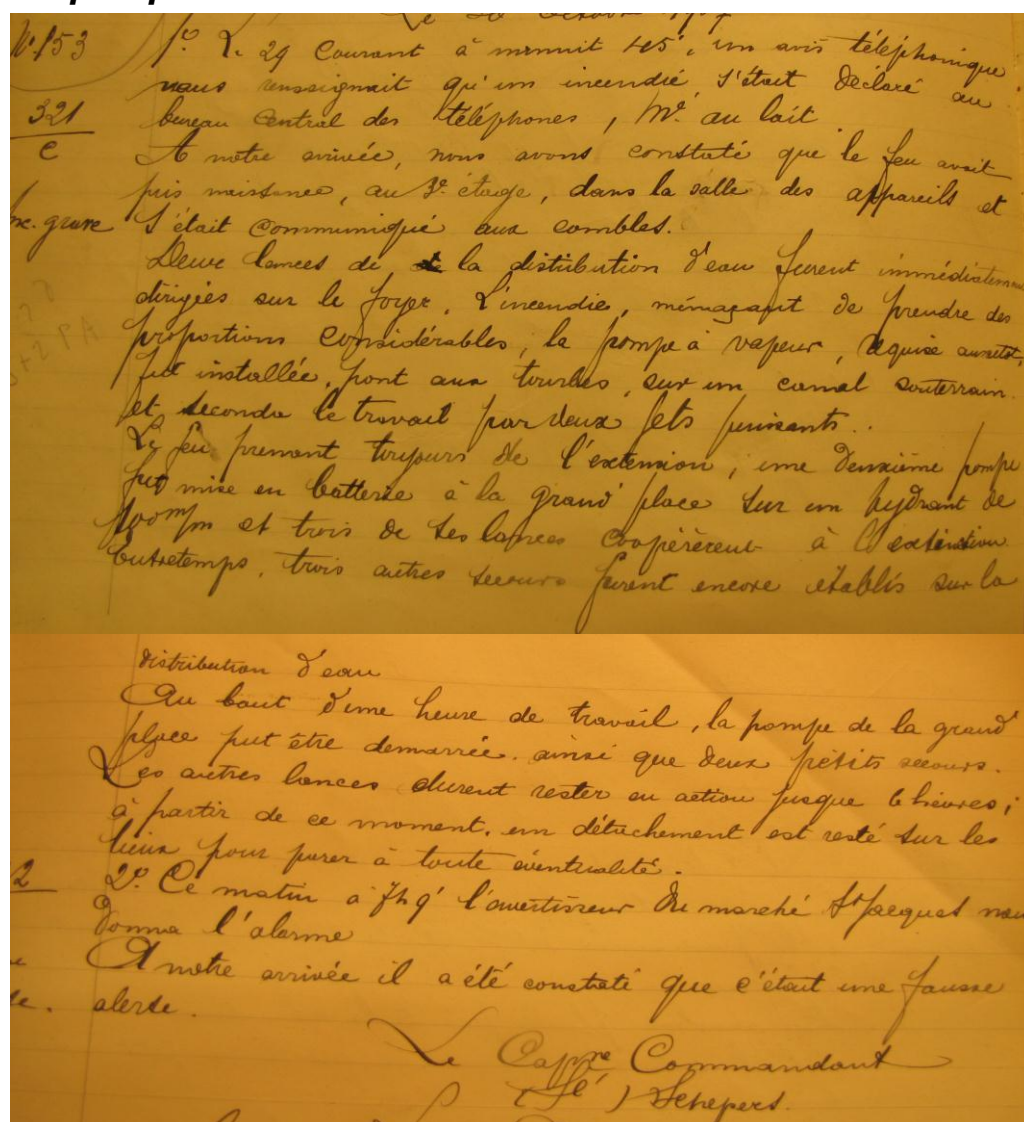 Le 30 Octobre 1909
N° 153
1° Le 29 Courant à minuit 45', un avis téléphonique
nous renseignait qu'un incendie s'était déclaré au
321
bureau central des téléphones, Mé. au lait
C
A notre arrivée, nous avons constaté que le feu avait
pris naissance, au 3e étage, dans la salle des appareils et
inc. grave
s'était communiqué aux combles.
Deux lances de la distribution d'eau furent immédiatement
dirigées sur le foyer. L'incendie, ménaçant de prendre des
proportions considérables, la pompe à vapeur, requise aussitôt,
fut installée, pont aux tourbes, sur un canal souterrain
et seconda le travail par deux jets puissants.
Le feu prenant toujours de l'extension, une deuxième pompe
fut mise en batterie à la grand' place sur un hydrant de
100 m/m et trois de ses lances coopérèrent à l'extinction
Entretemps, trois autres secours furent encore établis sur la
distribution d'eau
Au bout d'une heure de travail, la pompe de la grand'
place put être demarrée. ainsi que deux petits secours.
Les autres lances durent rester en action jusque 6 heures;
à partir de ce moment, un détachement est resté sur les
lieux pour parer à toute éventualité.
2
2° Ce matin à 7h9' l'avertisseur du marché St Jacques nous
donna l'alarme
A notre arrivée il a été constaté que c'était une fausse
alerte.
Le Capne Commandant
(Sé) Schepers.